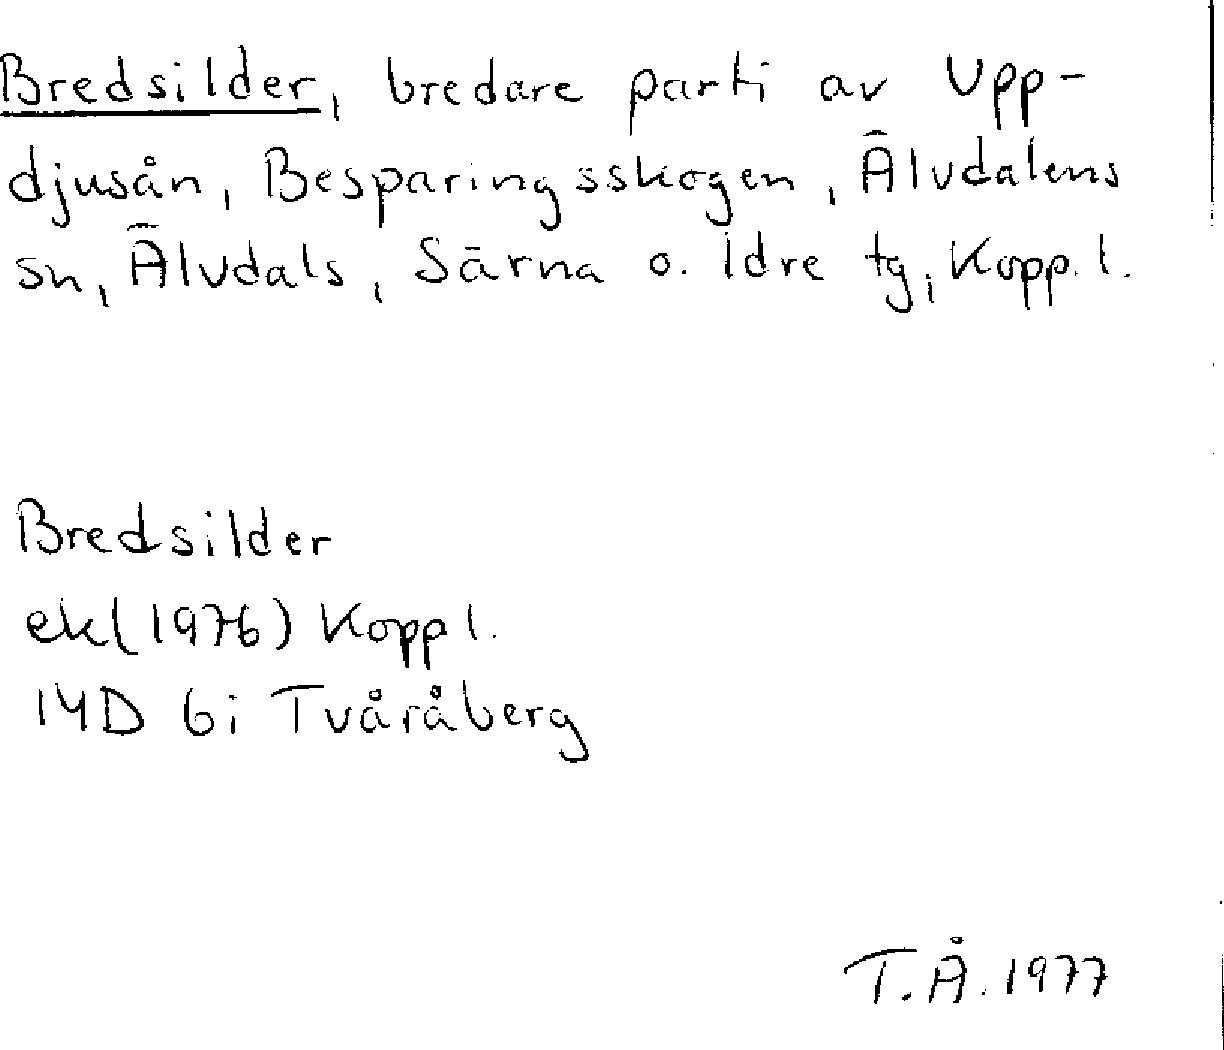 Bredsilder, bredare parti av Upp-
djusån, Besparingsskogen, Älvdalens
sn, Älvdals, Särna o. Idre tg, Kopp. l.
Bredsilder
ek (1976) Kopp l.
14D 6i Tvåråberg
T.Å. 1977